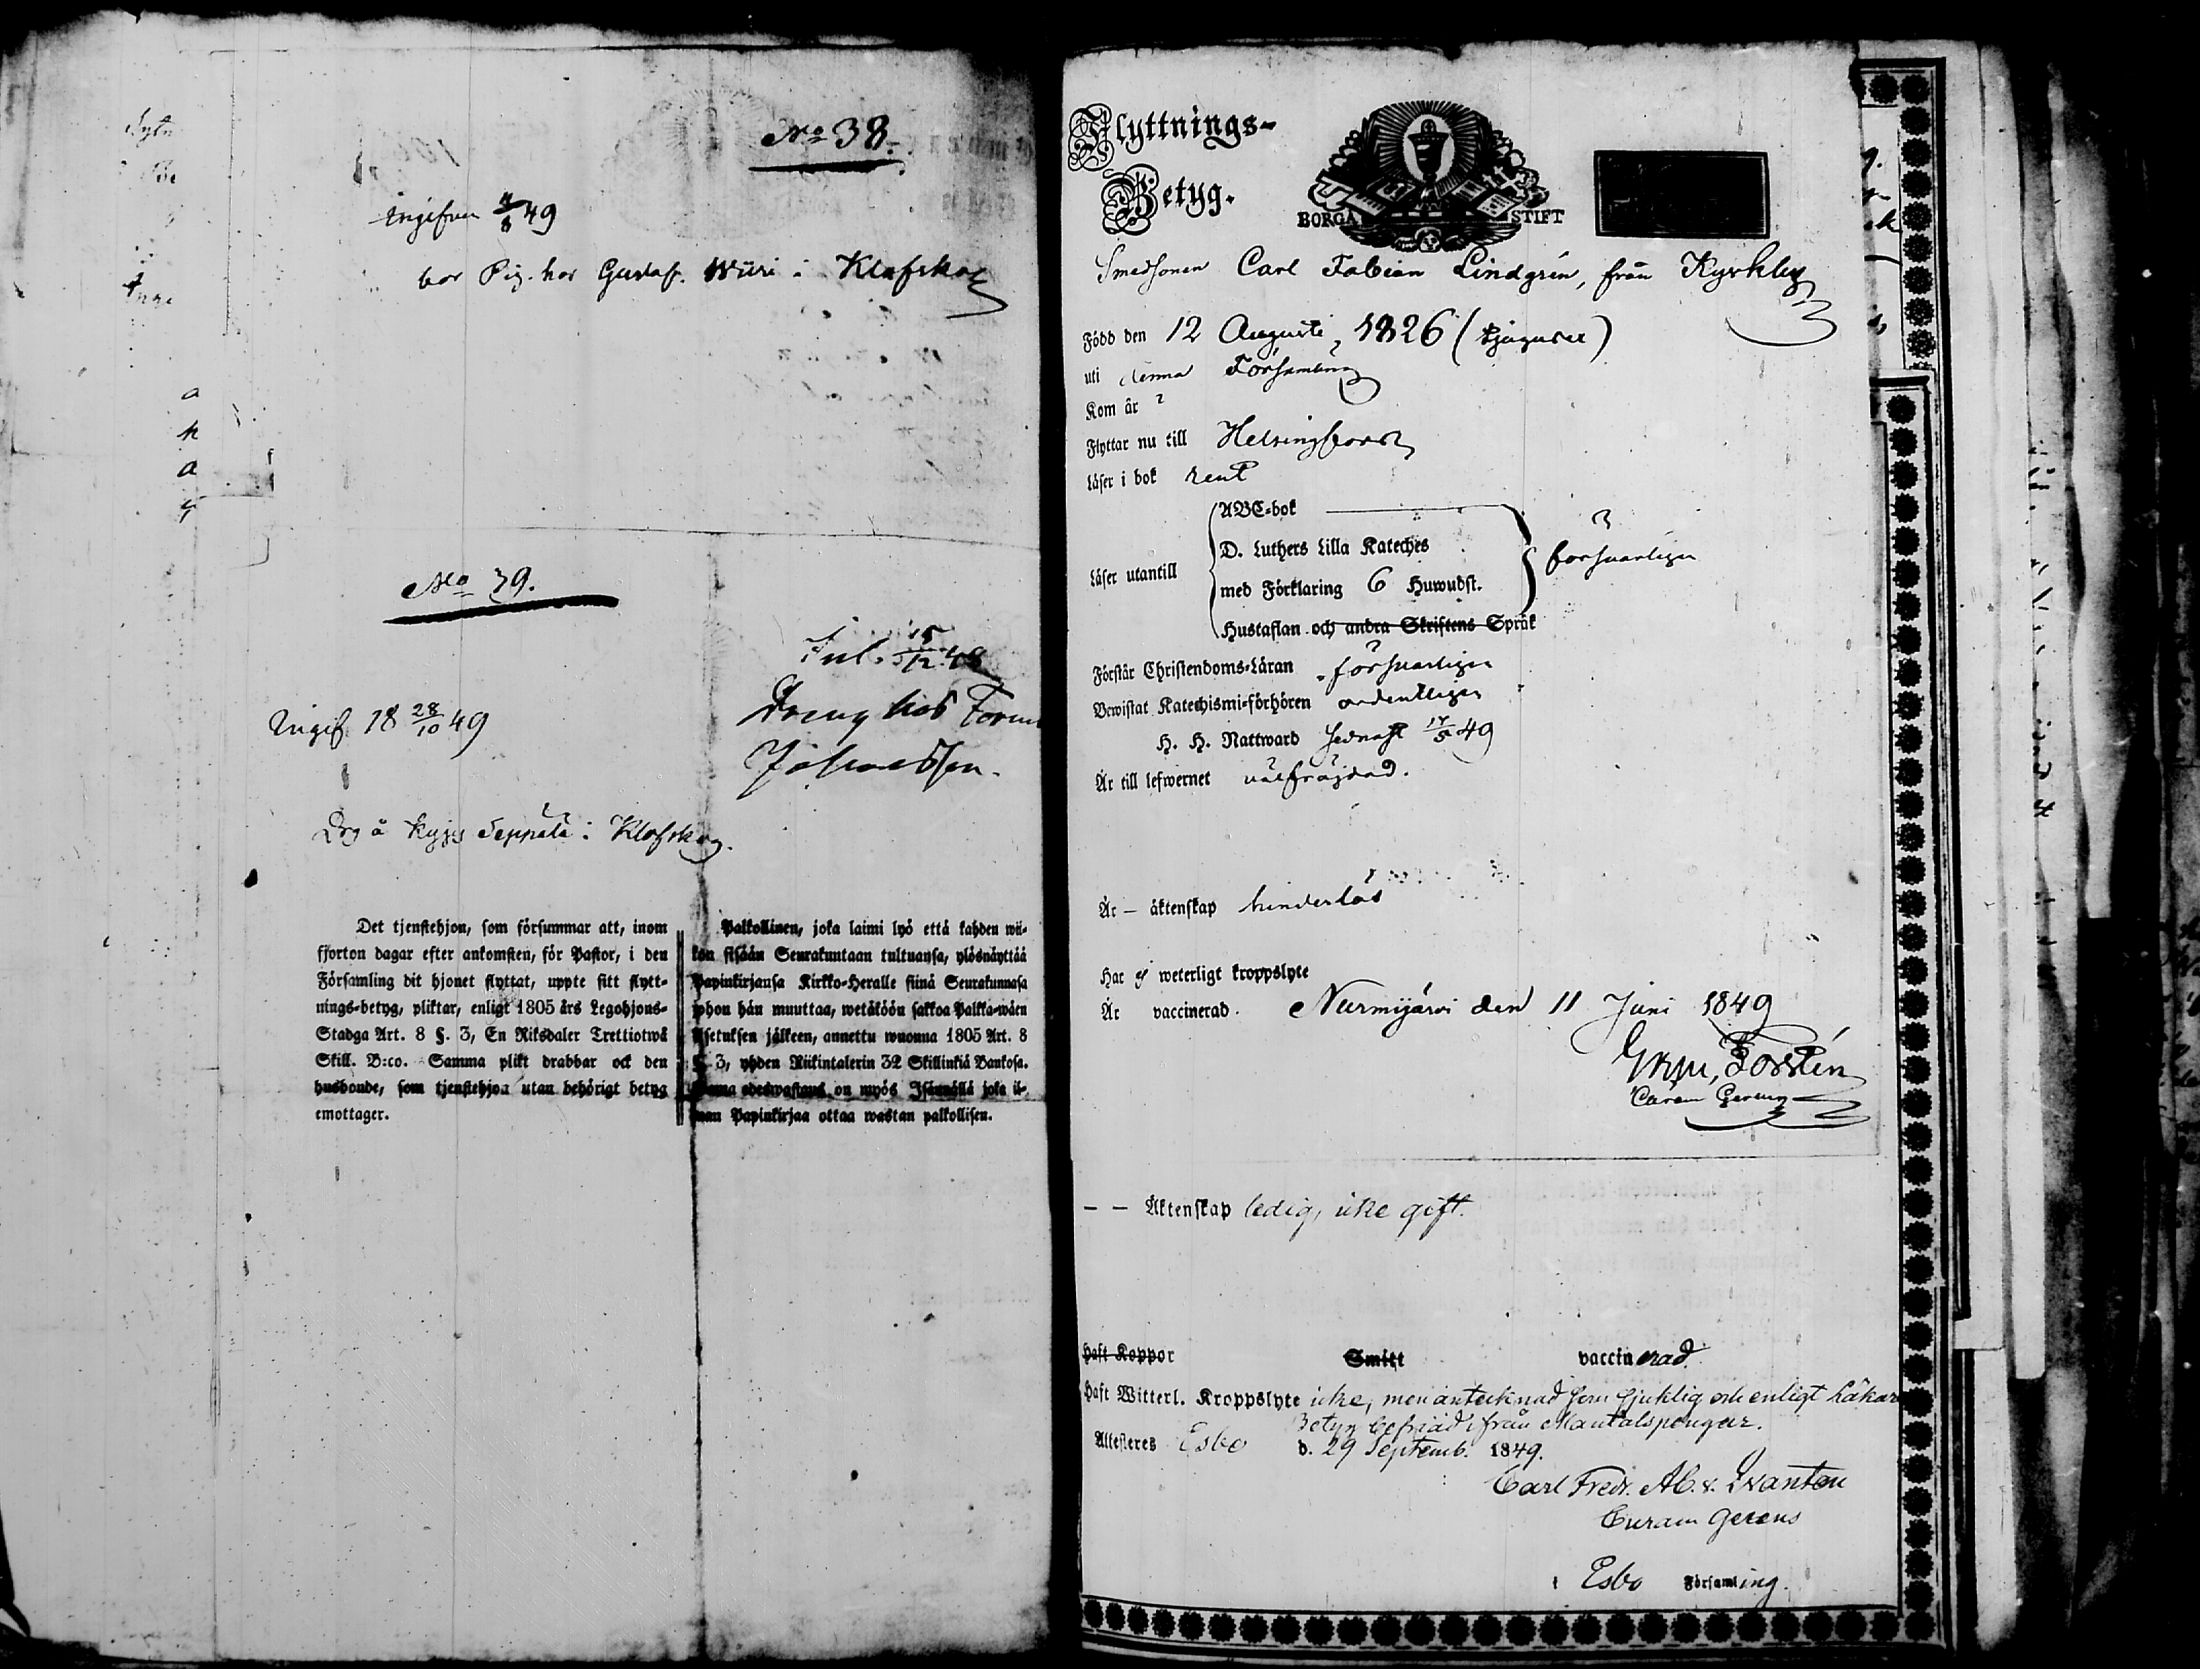 No 38.
Ingifven 4/8 49
bor Pig. hos Gustaf. Wiiri i Klafskog
No 39.
Inl. 15/12 48
Dreng hos
Johansson.
Ingif. 18 28/10 49
Drg å Seppälä i Klafskog.
Det tjenstehjon, som försummar att, inom
fjorton dagar efter ankomsten, för Pastor, i den
Församling dit hjonet flyttat, uppte sitt flytt-
nings-betyg, pliktar, enligt 1805 års Legohjons-
Stadga Art. 8 §. 3, En Riksdaler Trettiotwå
Skill. B:co. Samma plikt drabbar ock den
husbonde, som tjenstehjon utan behörigt betyg
emottager.
Palkollinen, joka laimi lyö että kahden wii-
kon sisään Seurakuntaan tultuansa, ylösnäyttää
Papinkirjansa Kirkko-Heralle siinä Seurakunnasa
johon hän muuttaa, wetäköön sakkoa Palkka-wäen
Asetuksen jälkeen, annettu wuonna 1805 Art. 8
§. 3, yhden Riikintalerin 32 Skillinkiä Bankosa.
on myös Isännällä joka il-
man Papinkirjaa ottaa wastan palkollisen.
Flyttnings-
Betyg.
BORGÅ STIFT
Smedsonen Carl Fabian Lindgrén, från Kyrkby
Född den 12 Augusti, 1826 (tjuguser)
uti denna Församling
Kom år
Flyttar nu till Helsingfors
Läser i bok rent
Läser utantill
ABC-bok
D. Luthers Lilla Kateches
med Förklaring 6 Huwudst.
Hustaflan och andra Skriftens Språk
försvarligen
Förstår Christendoms-Läran försvarligen
Bewistat Katechismi-förhören ordentligen
H. H. Nattward sednast 17/5 49
Är till lefwernet välfräjdad.
Är — äktenskap hinderlös
Har ej weterligt kroppslyte
Är vaccinerad. Nurmijärvi den 11 Juni 1849
Forstén
Curam Gerens
— — Äktenskap ledig, icke gift.
Haft Koppor Smitt vaccinerad.
Haft Witterl. Kroppslyte icke, men antecknad som sjuklig och enligt Läkare
Betyg befriad ifrån Mantalspengar.
Attesteres Esbo d. 29 Septemb. 1849.
Carl Fredr. Ab. v. Qvanten
Curam Gerens
i Esbo Församling.